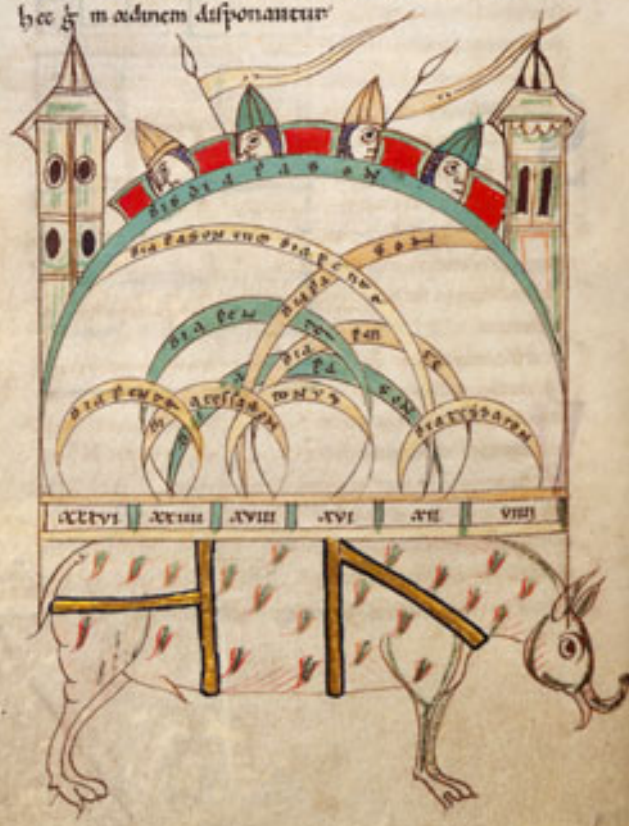 hec g̃ in ordinem disponantur
bis diapason
diapason cum diapente
diapason
diapente
diapente
diapason
diapente
diatessaron
tonus
diatessaron
XXXVI XXIIII XVIII XVI XII VIIII